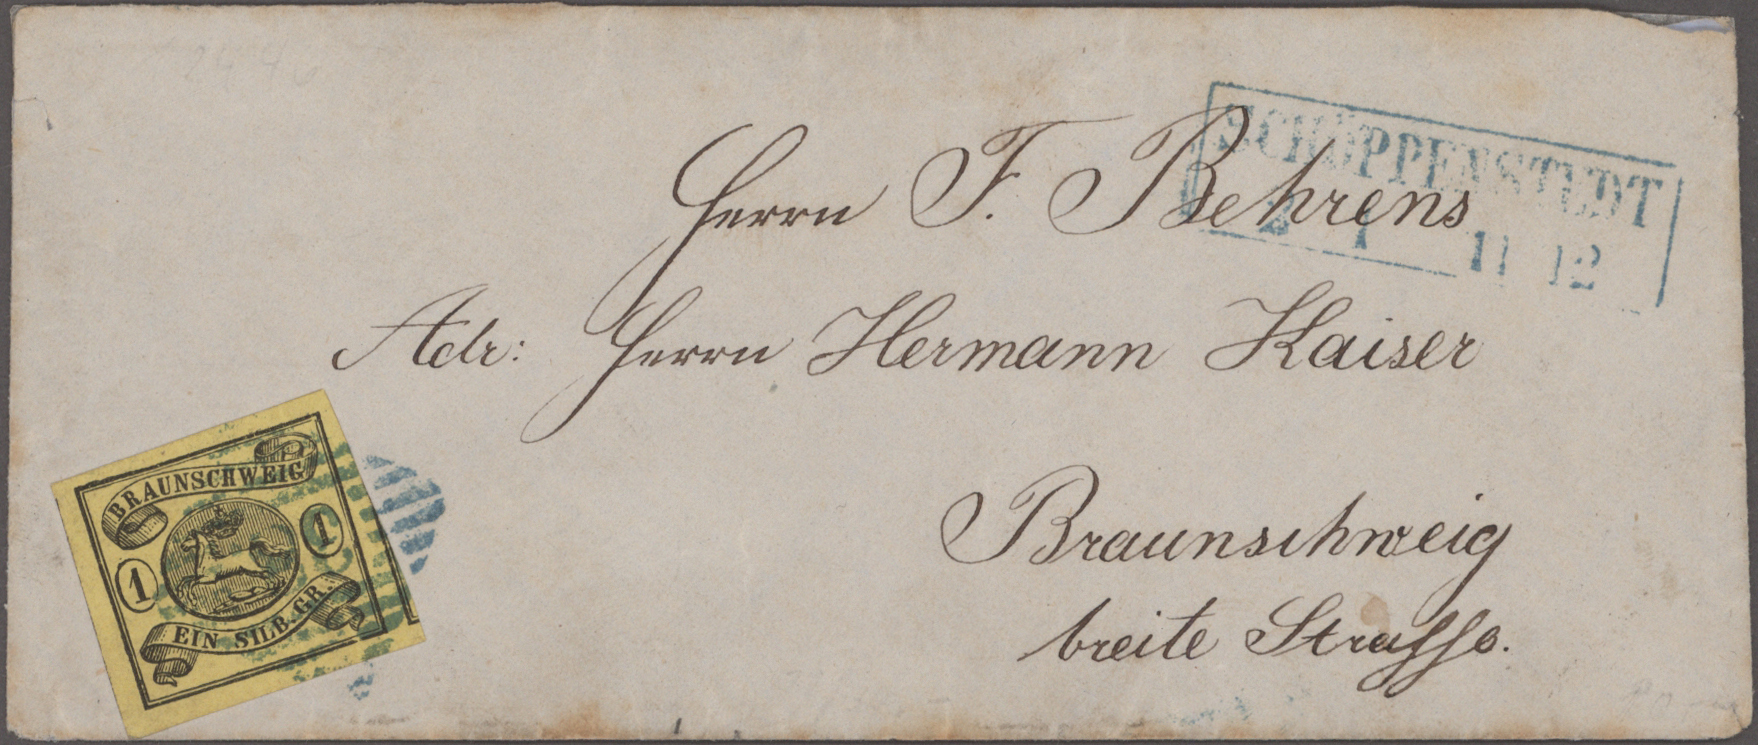 SCHÖPPENSTEDT
2 1 11 12
Herrn F. Behrens
Adr: Herrn Hermann Kaiser
Braunschweig
breite Strasse.
BRAUNSCHWEIG
1 1
EIN SILB. GR.